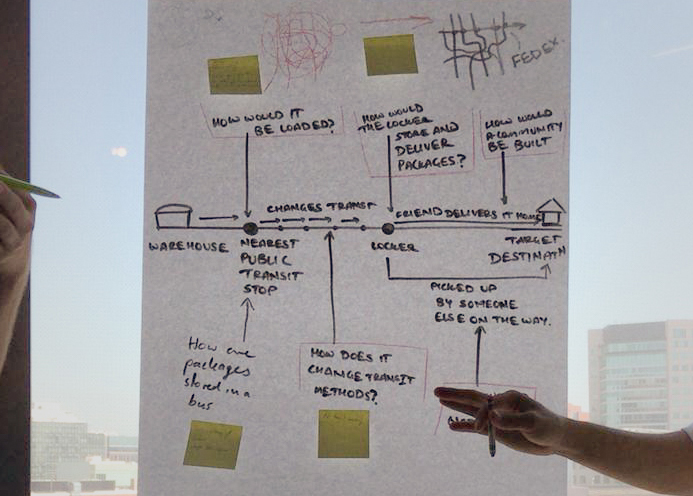 FEDEX.
HOW WOULD IT
BE LOADED?
HOW WOULD
THE LOCKER
STORE AND
DELIVER
PACKAGES?
HOW WOULD
A COMMUNITY
BE BUILT
CHANGES TRANSIT
FRIEND DELIVERS IT HOME
WAREHOUSE
NEAREST
PUBLIC
TRANSIT
STOP
LOCKER
TARGET
DESTINATN
PICKED UP
BY SOMEONE
ELSE ON THE WAY.
How are
packages
stored in a
bus
HOW DOES IT
CHANGE TRANSIT
METHODS?